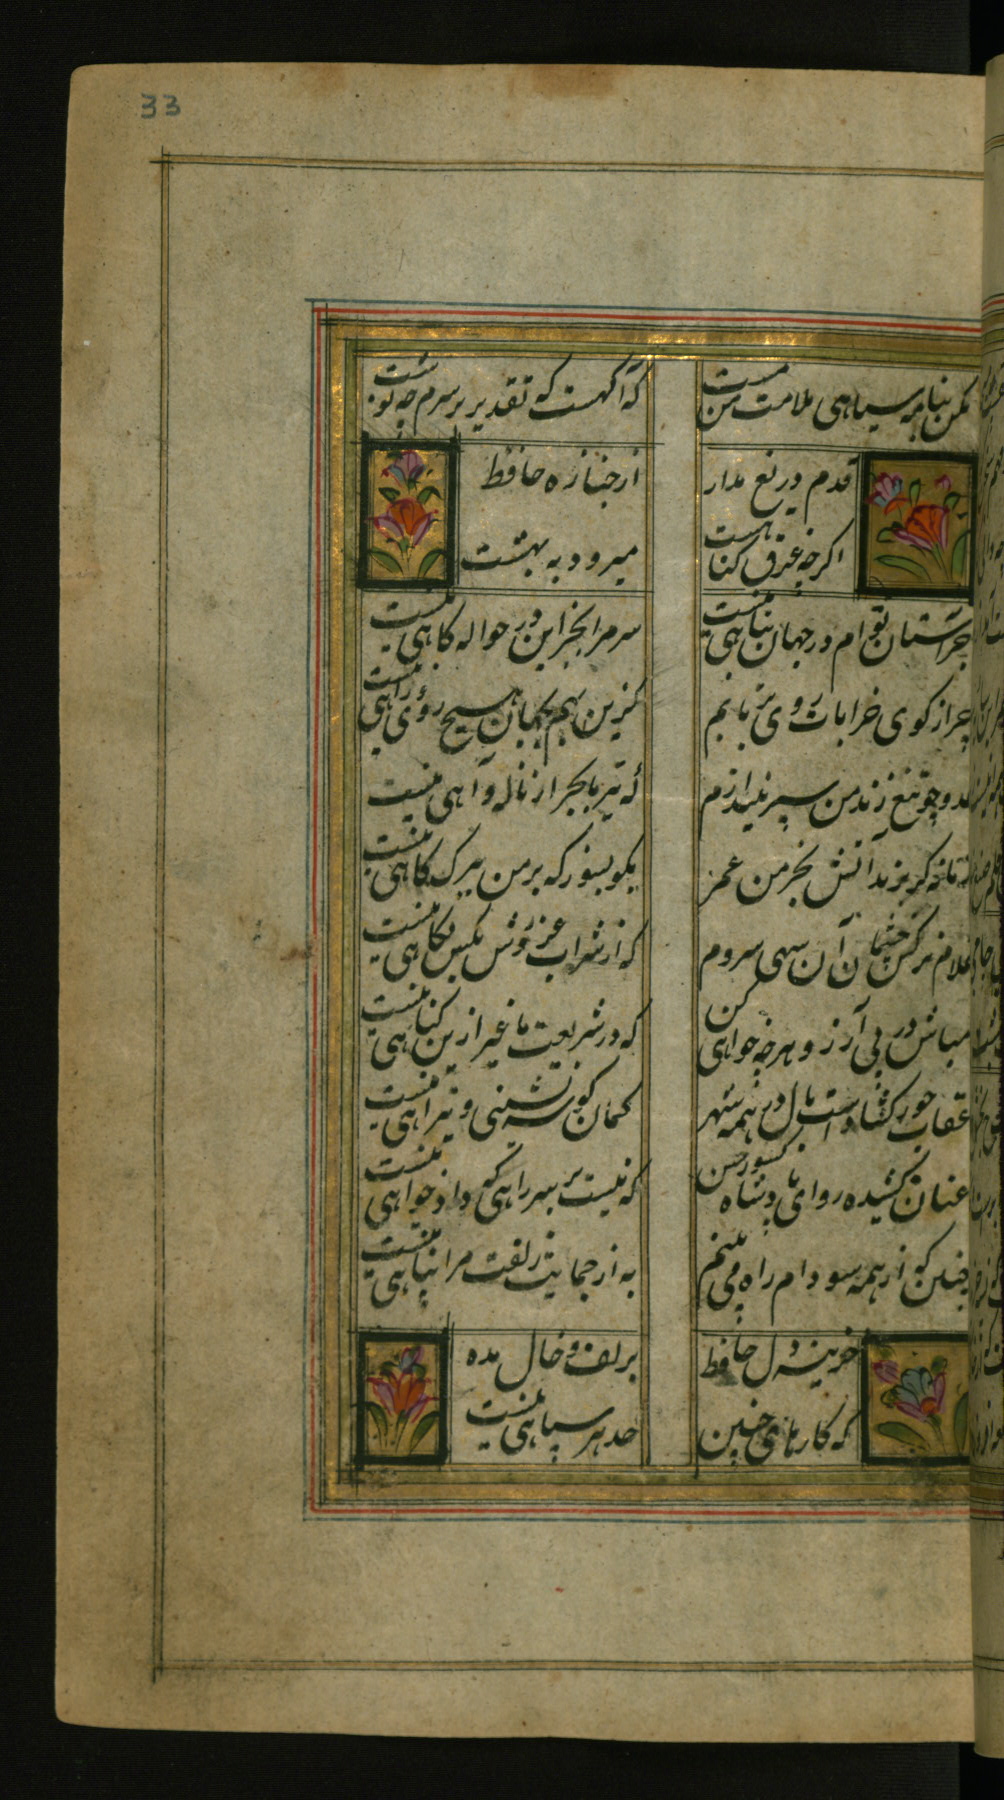 33
مکن بنامه سیاهی ملامت من مست
که آگهست که تقدیر بر سرم چه نوشت
قدم دریغ مدار
از جنازه حافظ
اگرچه غرق گناهست
میرود به بهشت
جز آستان توام در جهان پناهی نیست
سر مرا بجز این در حواله گاهی نیست
چرا ز کوی خرابات روی برتابم
کزین بهم بجهان هیچ روی و راهی نیست
عدو چو تیغ زند من سپر بیندازم
که تیر ما بجز از ناله و آهی نیست
زمانه گر بزند آتشم بخرمن عمر
بگو بسوز که بر من ببرگ کاهی نیست
غلام نرگس چشمان آن سهی سروم
که از شراب غرورش بکس نگاهی نیست
مباش در پی آزار و هرچه خواهی کن
که در شریعت ما غیر ازین گناهی نیست
عقاب جور گشادست بال در همه شهر
کمان گوشه نشینی و تیر آهی نیست
عنان کشیده رو ای پادشاه کشور حسن
که نیست بر سر راهی که دادخواهی نیست
چنین که از همه سو دام راه می بینم
به از حمایت زلفت مرا پناهی نیست
خزینه دل حافظ
بزلف و خال مده
که کارهای چنین
حد هر سیاهی نیست